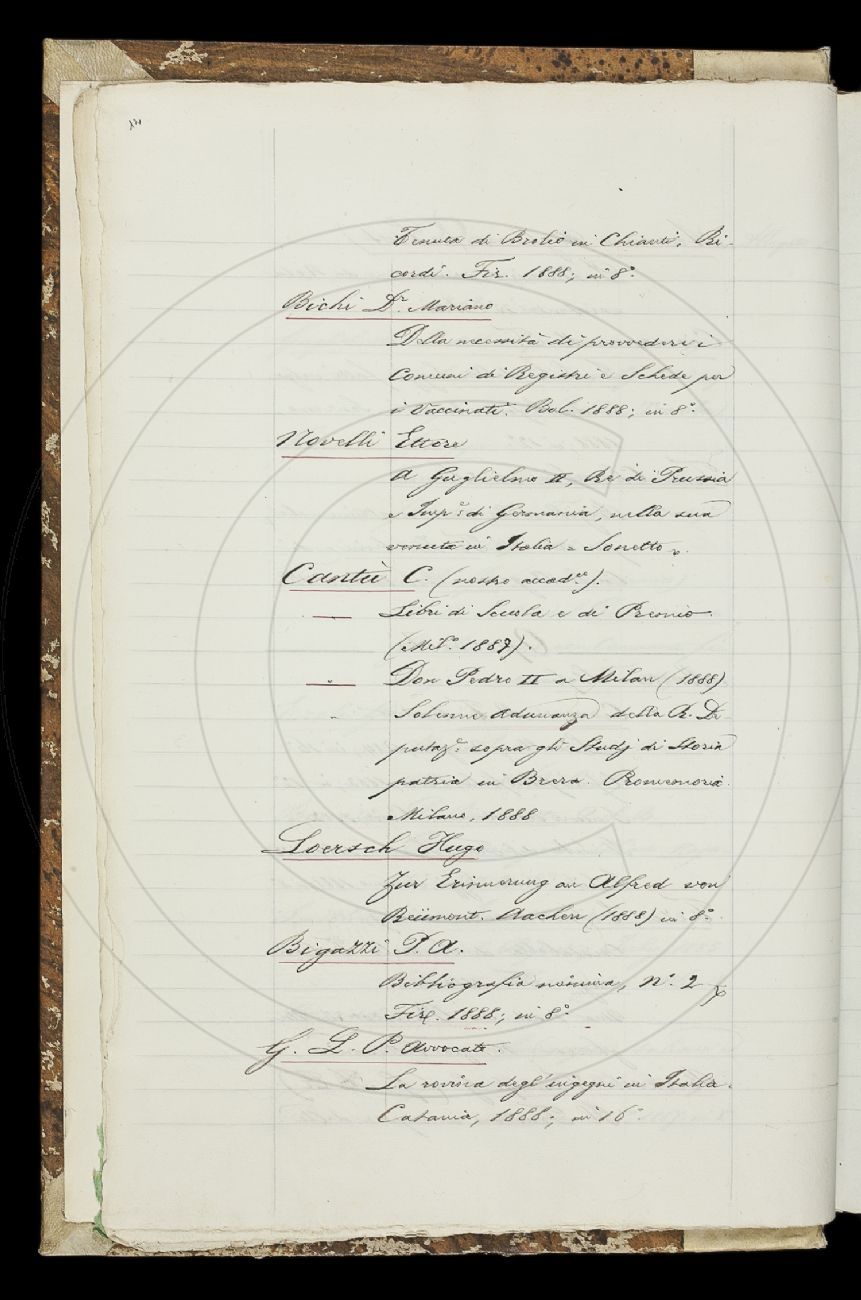 Tenuta di Brolio in Chianti, Ri-
cordi. Fir. 1888; in 8°.
Bichi D.r Mariano
Della necessità di provvedere i
Comuni di Registri e Schede per
i Vaccinati. Bol. 1888; in 8°.
Novelli Ettore
A Guglielmo II, Re di Prussia
e Imp.e di Germania, nella sua
venuta in Italia = Sonetto
Cantù C. (nostro accad.co).
Libri di Scuola e di Premio.
(Mil.o 1887).
Don Pedro II a Milan (1888)
Solenne adunanza della R. De
putaz.e sopra gli Studj di Storia
patria in Brera. Promemoria.
Milano, 1888
Loersch Hugo
Zur Erinnerung an Alfred von
Reümont. Aachen (1888) in 8°.
Bigazzi P. A.
Bibliografia minima, N.° 2
Fir. 1888; in 8°.
G. L. P. Avvocato.
La rovina degl'ingegni in Italia.
Catania, 1888; in 16°.